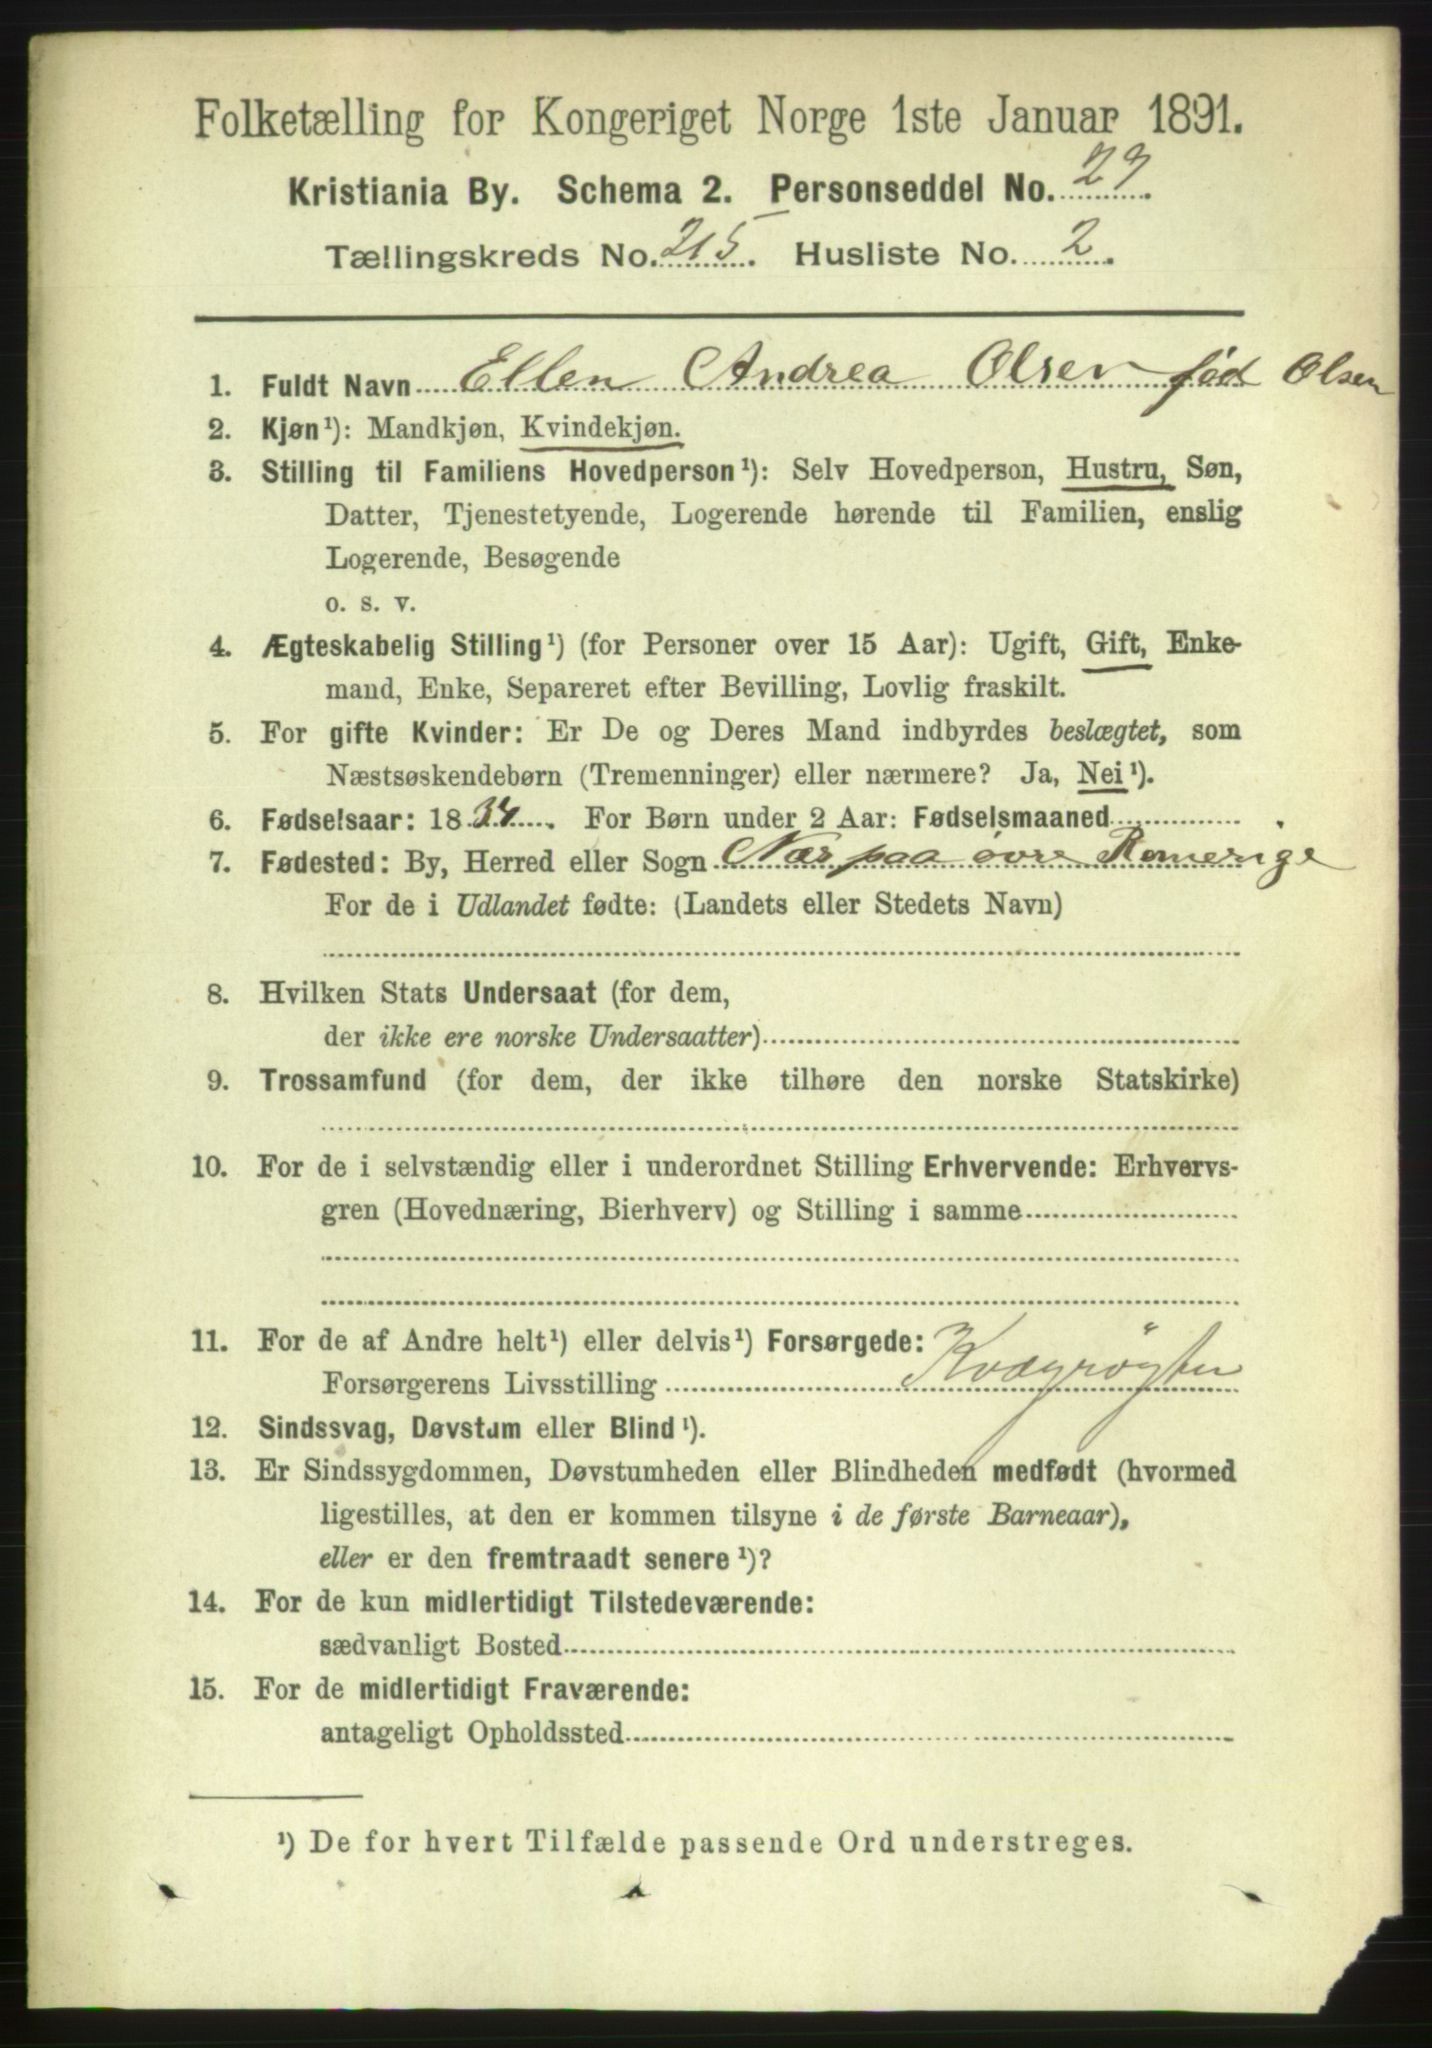 Folketælling for Kongeriget Norge 1ste Januar 1891.
Kristiania By. Schema 2. Personseddel No. 27.
Tællingskreds No. 215. Husliste No. 2.
1. Fuldt Navn Ellen Andrea Olsen fød Olsen
2. Kjøn¹): Mandkjøn, Kvindekjøn.
3. Stilling til Familiens Hovedperson¹): Selv Hovedperson, Hustru, Søn,
Datter, Tjenestetyende, Logerende hørende til Familien, enslig
Logerende, Besøgende
o. s. v.
4. Ægteskabelig Stilling¹) (for Personer over 15 Aar): Ugift, Gift, Enke-
mand, Enke, Separeret efter Bevilling, Lovlig fraskilt.
5. For gifte Kvinder: Er De og Deres Mand indbyrdes beslægtet, som
Næstsøskendebørn (Tremenninger) eller nærmere? Ja, Nei¹).
6. Fødselsaar: 1834. For Børn under 2 Aar: Fødselsmaaned
7. Fødested: By, Herred eller Sogn Næs paa øvre Romerige
For de i Udlandet fødte: (Landets eller Stedets Navn)
8. Hvilken Stats Undersaat (for dem,
der ikke ere norske Undersaatter)
9. Trossamfund (for dem, der ikke tilhøre den norske Statskirke)
10. For de i selvstændig eller i underordnet Stilling Erhvervende: Erhvervs-
gren (Hovednæring, Bierhverv) og Stilling i samme
11. For de af Andre helt¹) eller delvis¹) Forsørgede:
Forsørgerens Livsstilling Kvægrögter
12. Sindssvag, Døvstum eller Blind¹).
13. Er Sindssygdommen, Døvstumheden eller Blindheden medfødt (hvormed
ligestilles, at den er kommen tilsyne i de første Barneaar),
eller er den fremtraadt senere¹)?
14. For de kun midlertidigt Tilstedeværende:
sædvanligt Bosted
15. For de midlertidigt Fraværende:
antageligt Opholdssted
¹) De for hvert Tilfælde passende Ord understreges.